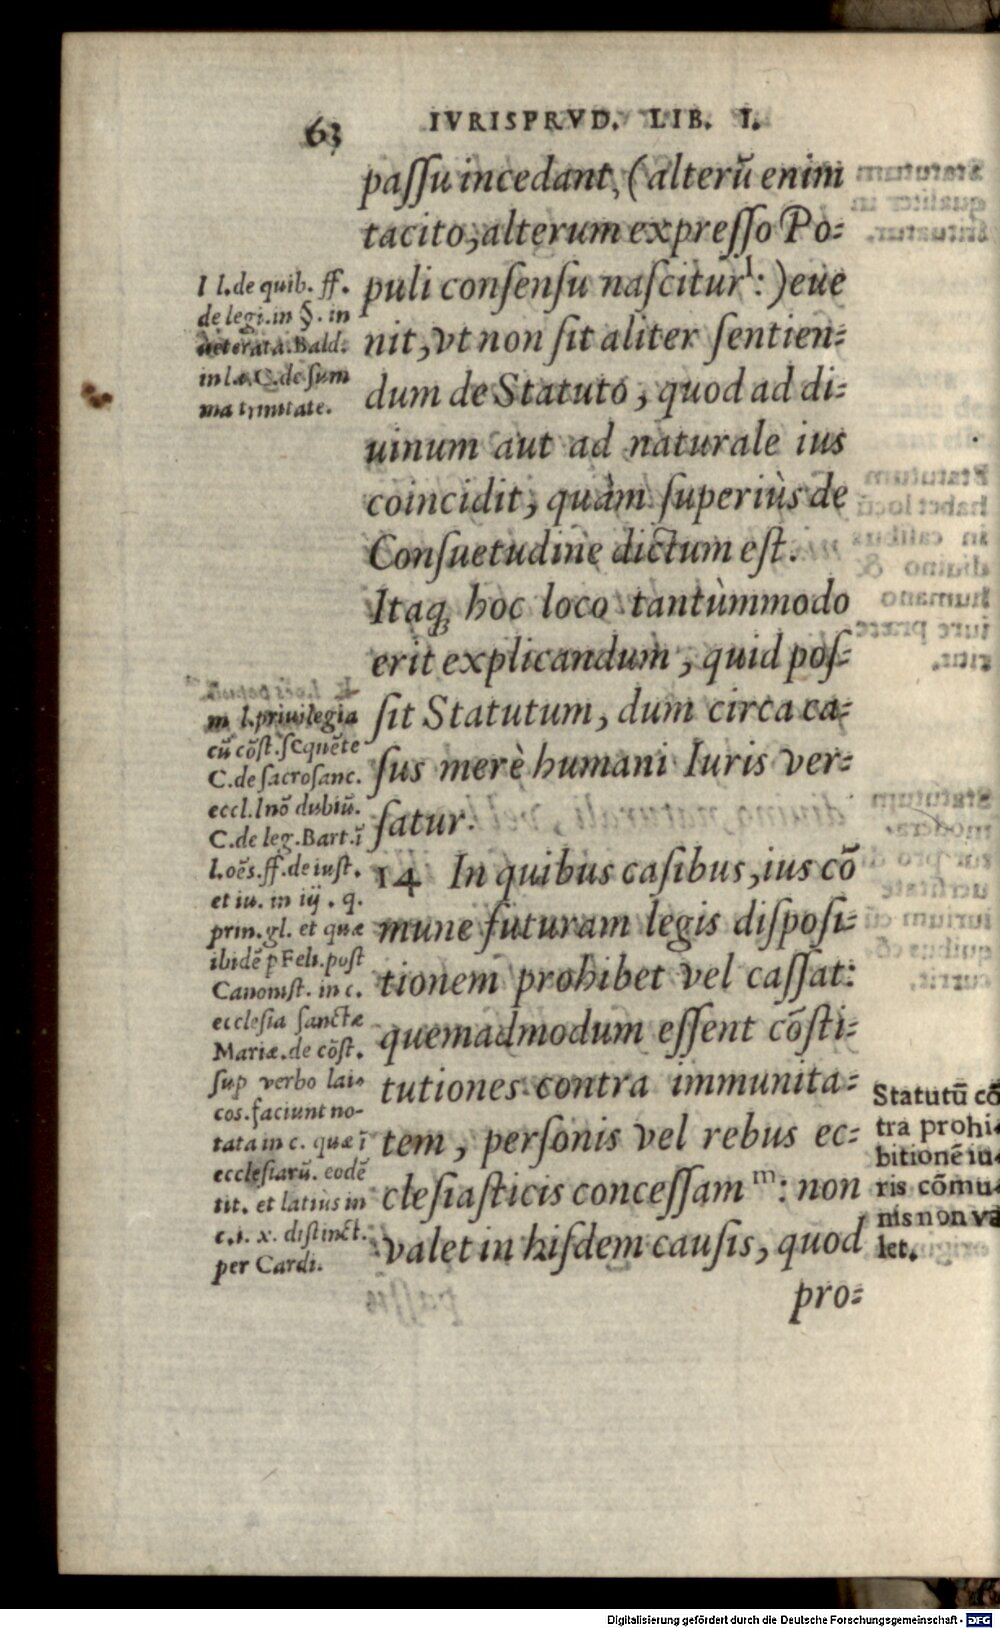 63
IVRISPRVD. LIB. I.
paſſu incedant, (alterū enim
tacito, alterum expreſſo Po⸗
puli conſenſu naſcitur¹: ) eue
nit, vt non ſit aliter ſentien⸗
dum de Statuto, quod ad di⸗
uinum aut ad naturale ius
coincidit, quàm ſuperiùs de
Conſuetudine dictum eſt.
Itaq; hoc loco tantùmmodo
erit explicandum, quid poſ⸗
ſit Statutum, dum circa ca⸗
ſus merè humani Iuris ver⸗
ſatur.
14 In quibus caſibus, ius cō
mune futuram legis diſpoſi⸗
tionem prohibet vel caſſat:
quemadmodum eſſent cōſti⸗
tutiones contra immunita⸗
tem, perſonis vel rebus ec⸗
cleſiaſticis conceſſam ᵐ: non
valet in hiſdem cauſis, quod
pro⸗
l l. de quib. ff.
de legi. in §. in
ueterata. Bald.
in l. a. C. de ſum
ma trinitate.
m l. priuilegia
cū cōſt. ſequēte
C. de ſacroſanc.
eccl. l nō dubiū.
C. de leg. Bart. ī
l. oēs. ff. de iuſt.
et iu. in iij. q.
prin. gl. et quæ
ibidē p Feli. poſt
Canoniſt. in c.
eccleſia ſanctæ
Mariæ. de cōſt.
ſup verbo lai⸗
cos. faciunt no-
tata in c. quæ ī
eccleſiarū. eodē
tit. et latiùs in
c. i. x. diſtinct.
per Cardi.
Statutū cō
tra prohi⸗
bitionē iu⸗
ris cōmu⸗
nis non va
let.
Digitalisierung gefördert durch die Deutsche Forschungsgemeinschaft - DFG